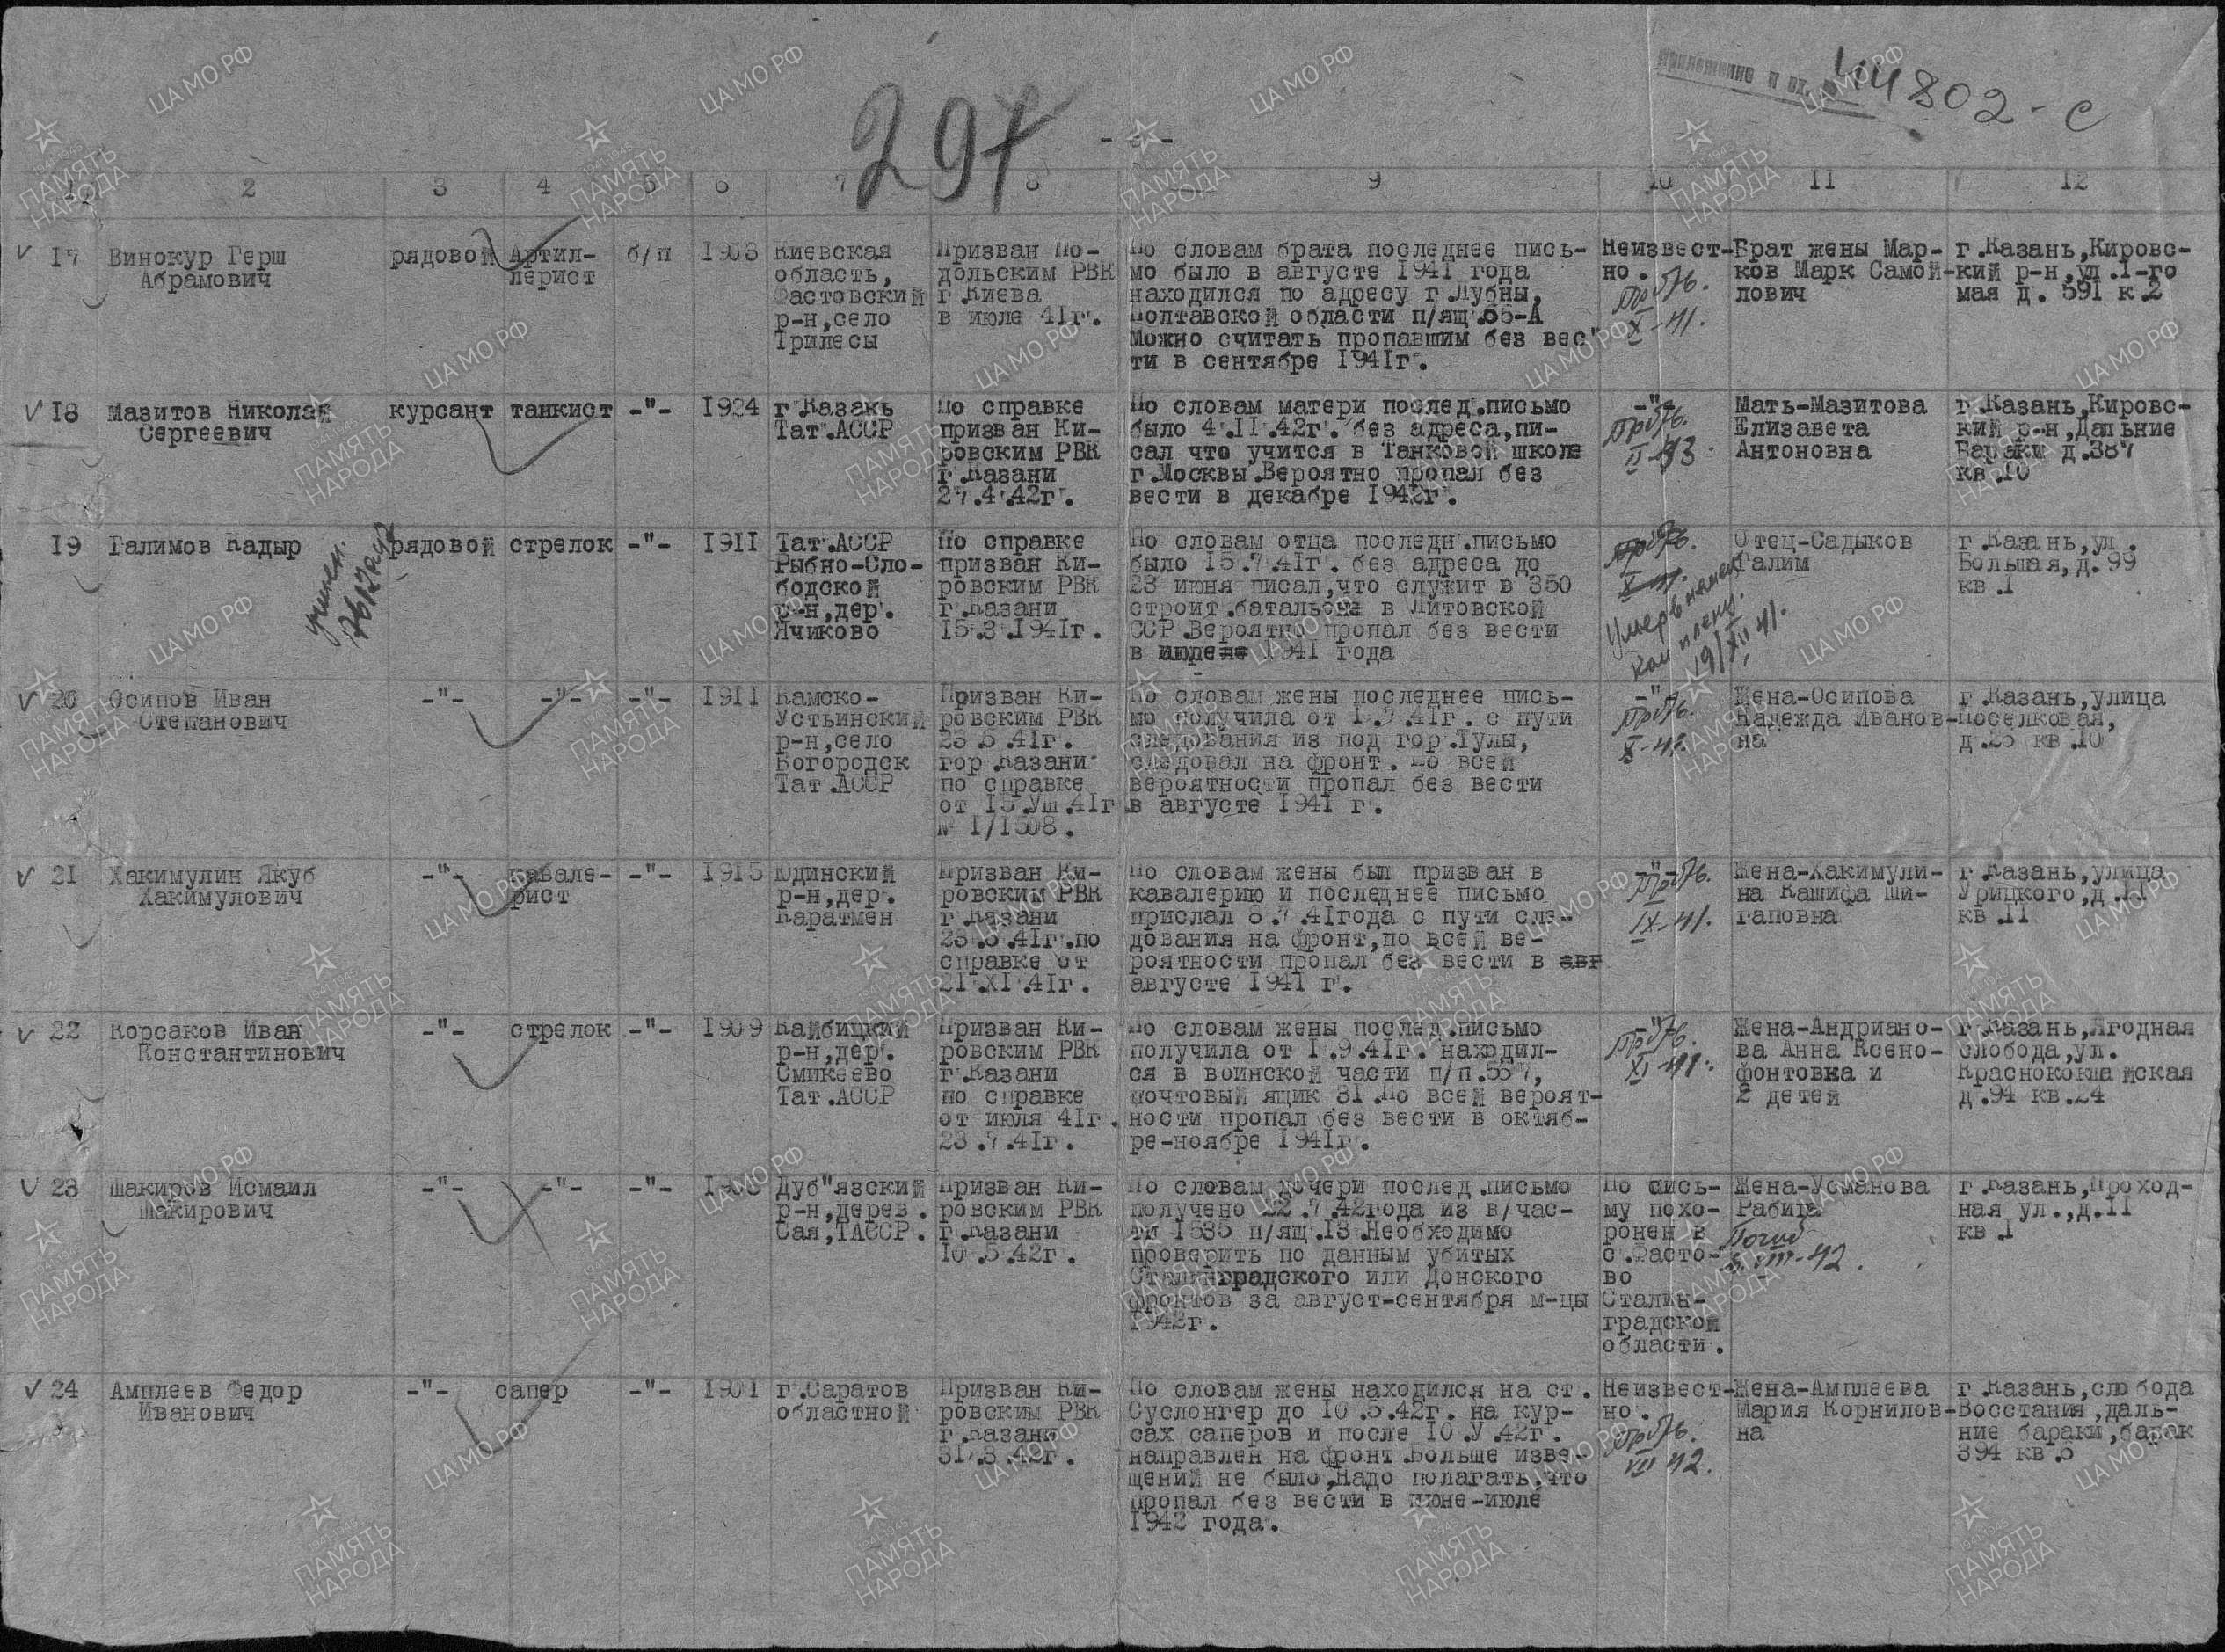 Приложение к вх.
44802-с
297
- -
1 2 3 4 5 6 7 8 9 10 11 12
17 Винокур Герш
Абрамович
рядовой
Артил-
лерист
б/п
Киевская
область,
Фастовский
р-н,село
Трилесы
Призван По-
дольским РВК
г.Киева
в июле 41г.
По словам брата последнее пись-
мо было в августе 1941 года
находился по адресу г.Лубны,
Полтавской области п/ящ.
Можно считать пропавшим без вес-
ти в сентябре 1941г.
Неизвест-
но.
X-41.
Брат жены Мар-
ков Марк Самой-
лович
г.Казань,Кировс-
кий р-н,ул.1-го
мая д. 591 к.2
18 Мазитов Николай
Сергеевич
курсант
танкист
-"-
1924
г.Казань
Тат.АССР
По справке
призван Ки-
ровским РВК
г.Казани
27.4.42г.
По словам матери послед.письмо
было 4.11.42г. без адреса,пи-
сал что учится в Танковой школе
г.Москвы.Вероятно пропал без
вести в декабре 1942г.
-"-
II-43.
Мать-Мазитова
Елизавета
Антоновна
г.Казань,Кировс-
кий р-н,Дальние
Бараки д.387
кв.10
19 Галимов Кадыр
рядовой
стрелок
-"-
1911
Тат.АССР
Рыбно-Сло-
бодской
р-н,дер.
Ячиково
По справке
призван Ки-
ровским РВК
г.Казани
15.3.1941г.
По словам отца последн.письмо
было 15.7.41г. без адреса до
23 июня писал,что служит в 350
строит.батальоне в Литовской
ССР.Вероятно пропал без вести
в июле 1941 года
X-41.
Умер в немец
ком плену.
19/XII 41.
Отец-Садыков
Галим
г.Казань,ул.
Большая,д.99
кв.1
20 Осипов Иван
Степанович
-"-
-"-
-"-
1911
Камско-
Устьинский
р-н,село
Богородск
Тат.АССР
Призван Ки-
ровским РВК
гор.Казани
по справке
от 15.УШ.41г
№ 1/1508.
По словам жены последнее пись-
мо получила от 1.9.41г. с пути
следования из под гор.Тулы,
следовал на фронт. По всей
вероятности пропал без вести
в августе 1941 г.
-"-
X-41.
Жена-Осипова
Надежда Иванов-
на
г.Казань,улица
Поселковая,
д.25 кв.10
21 Хакимулин Якуб
Хакимулович
-"-
кавале-
рист
-"-
1915
Юдинский
р-н,дер.
Каратмен
Призван Ки-
ровским РВК
г.Казани
по
справке от
21.XI.41г.
По словам жены был призван в
кавалерию и последнее письмо
прислал 8.7.41года с пути сле-
дования на фронт,по всей ве-
роятности пропал без вести в авг
августе 1941 г.
-"-
IX-41.
Жена-Хакимули-
на Кашифа Ши-
гаповна
г.Казань,улица
Урицкого,д.17
кв.11
22 Корсаков Иван
Константинович
-"-
стрелок
-"-
1909
Кайбицкий
р-н,дер.
Смикеево
Тат.АССР
Призван Ки-
ровским РВК
г.Казани
по справке
от июля 41г.
23.7.41г.
По словам жены послед.письмо
получила от 1.9.41г. находил-
ся в воинской части п/п.557,
почтовый ящик 31.По всей вероят-
ности пропал без вести в октяб-
ре-ноябре 1941г.
-"-
XI-41.
Жена-Андриано-
ва Анна Ксено-
фонтовна и
2 детей
г.Казань,Ягодная
слобода,ул.
Краснококшайская
д.94 кв.24
23 Шакиров Исмаил
Шакирович
-"-
-"-
-"-
Дуб"язский
р-н,дерев.
Сая,ТАССР.
Призван Ки-
ровским РВК
г.Казани
10.5.42г.
По словам дочери послед.письмо
получено 22.7.42года из в/час-
ти 1535 п/ящ.13.Необходимо
проверить по данным убитых
Сталинградского или Донского
фронтов за август-сентября м-цы
1942г.
По пись-
му похо-
ронен в
с.Фасто-
во
Сталин-
градской
области.
Жена-Усманова
Рабига
Погиб
VIII-42.
г.Казань,Проход-
ная ул.,д.11
кв.1
24 Амплеев Федор
Иванович
-"-
сапер
-"-
1901
г.Саратов
областной
Призван Ки-
ровским РВК
г.Казани
31.3.42г.
По словам жены находился на ст.
Суслонгер до 10.5.42г. на кур-
сах саперов и после 10.У.42г.
направлен на фронт.Больше изве-
щений не было,Надо полагать,что
пропал без вести в июне-июле
1942 года.
Неизвест-
но.
VII 42.
Жена-Амплеева
Мария Корнилов-
на
г.Казань,слобода
Восстания,даль-
ние бараки,барак
394 кв.5
ЦА МО РФ
ПАМЯТЬ
НАРОДА